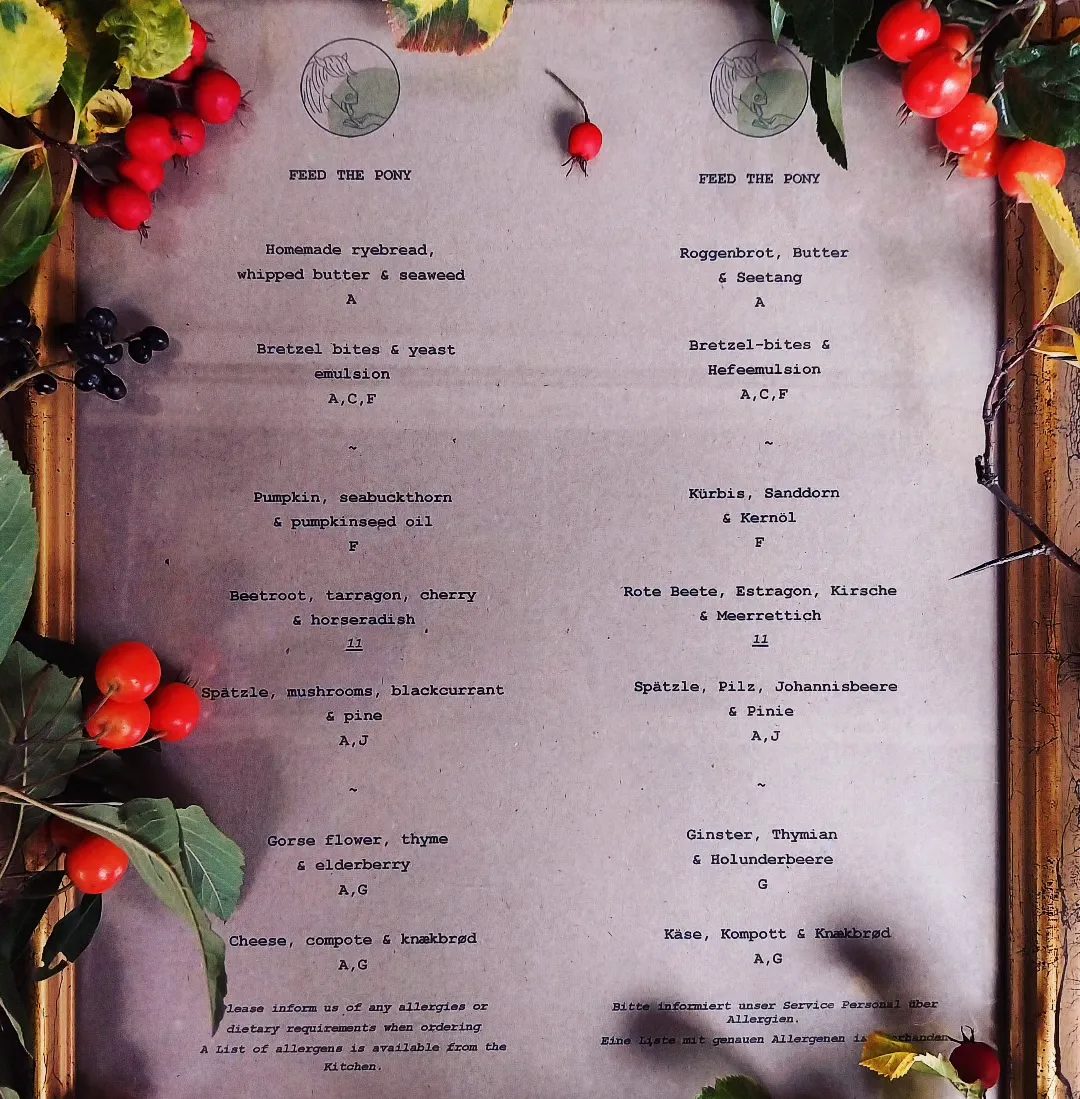 FEED THE PONY
Homemade ryebread,
whipped butter & seaweed
A
Bretzel bites & yeast
emulsion
A,C,F
~
Pumpkin, seabuckthorn
& pumpkinseed oil
F
Beetroot, tarragon, cherry
& horseradish
11
Spätzle, mushrooms, blackcurrant
& pine
A,J
~
Gorse flower, thyme
& elderberry
A,G
Cheese, compote & knækbrød
A,G
lease inform us of any allergies or
dietary requirements when ordering
A List of allergens is available from the
Kitchen.
FEED THE PONY
Roggenbrot, Butter
& Seetang
A
Bretzel-bites &
Hefeemulsion
A,C,F
~
Kürbis, Sanddorn
& Kernöl
F
Rote Beete, Estragon, Kirsche
& Meerrettich
11
Spätzle, Pilz, Johannisbeere
& Pinie
A,J
~
Ginster, Thymian
& Holunderbeere
G
Käse, Kompott & Knækbrød
A,G
Bitte informiert unser Service Personal über
Allergien.
Eine Liste mit genauen Allergenen